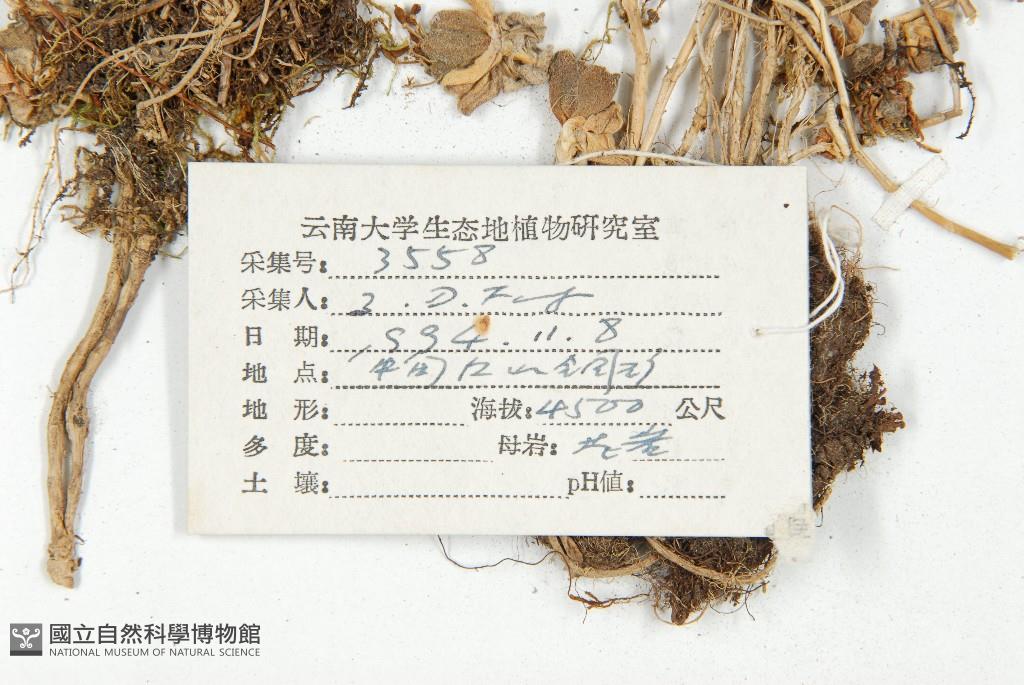 云南大学生态地植物研究室
采集号: 3558
采集人: . D.
日 期: 1994.11.8
地 点: 中甸
地 形: 海拔: 4500 公尺
多 度: 母岩:
土 壤: pH值:
國立自然科學博物館
NATIONAL MUSEUM OF NATURAL SCIENCE